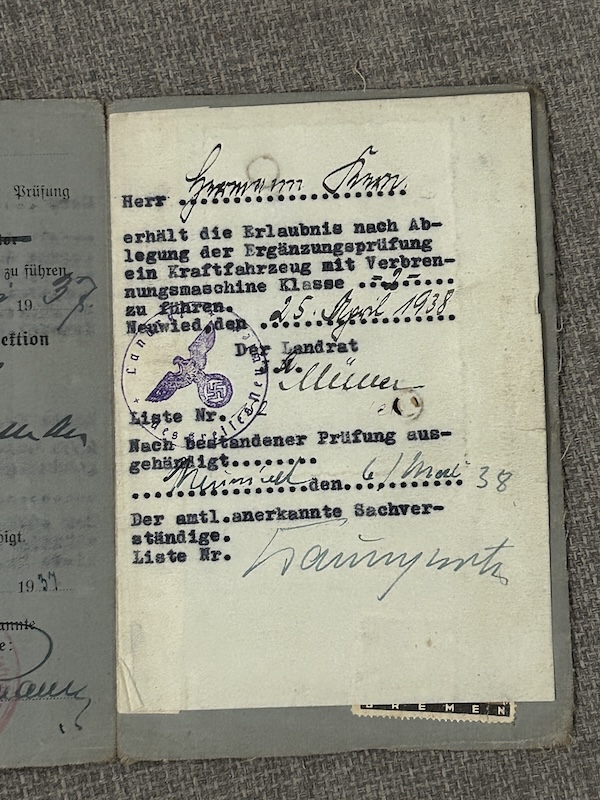 Prüfung
zu führen
1937.
ektion
bigt.
1937
annte
e:
Herr Hermann Kern.
erhält die Erlaubnis nach Ab-
legung der Ergänzungsprüfung
ein Kraftfahrzeug mit Verbren-
nungsmaschine Klasse -2-
zu führen.
Neuwied,den 25. April 1938
Der Landrat
Liste Nr.
Nach bestandener Prüfung aus-
gehändigt........
Neuwied den 6/Mai 38
Der amtl.anerkannte Sachver-
ständige.
Liste Nr.
BREMEN